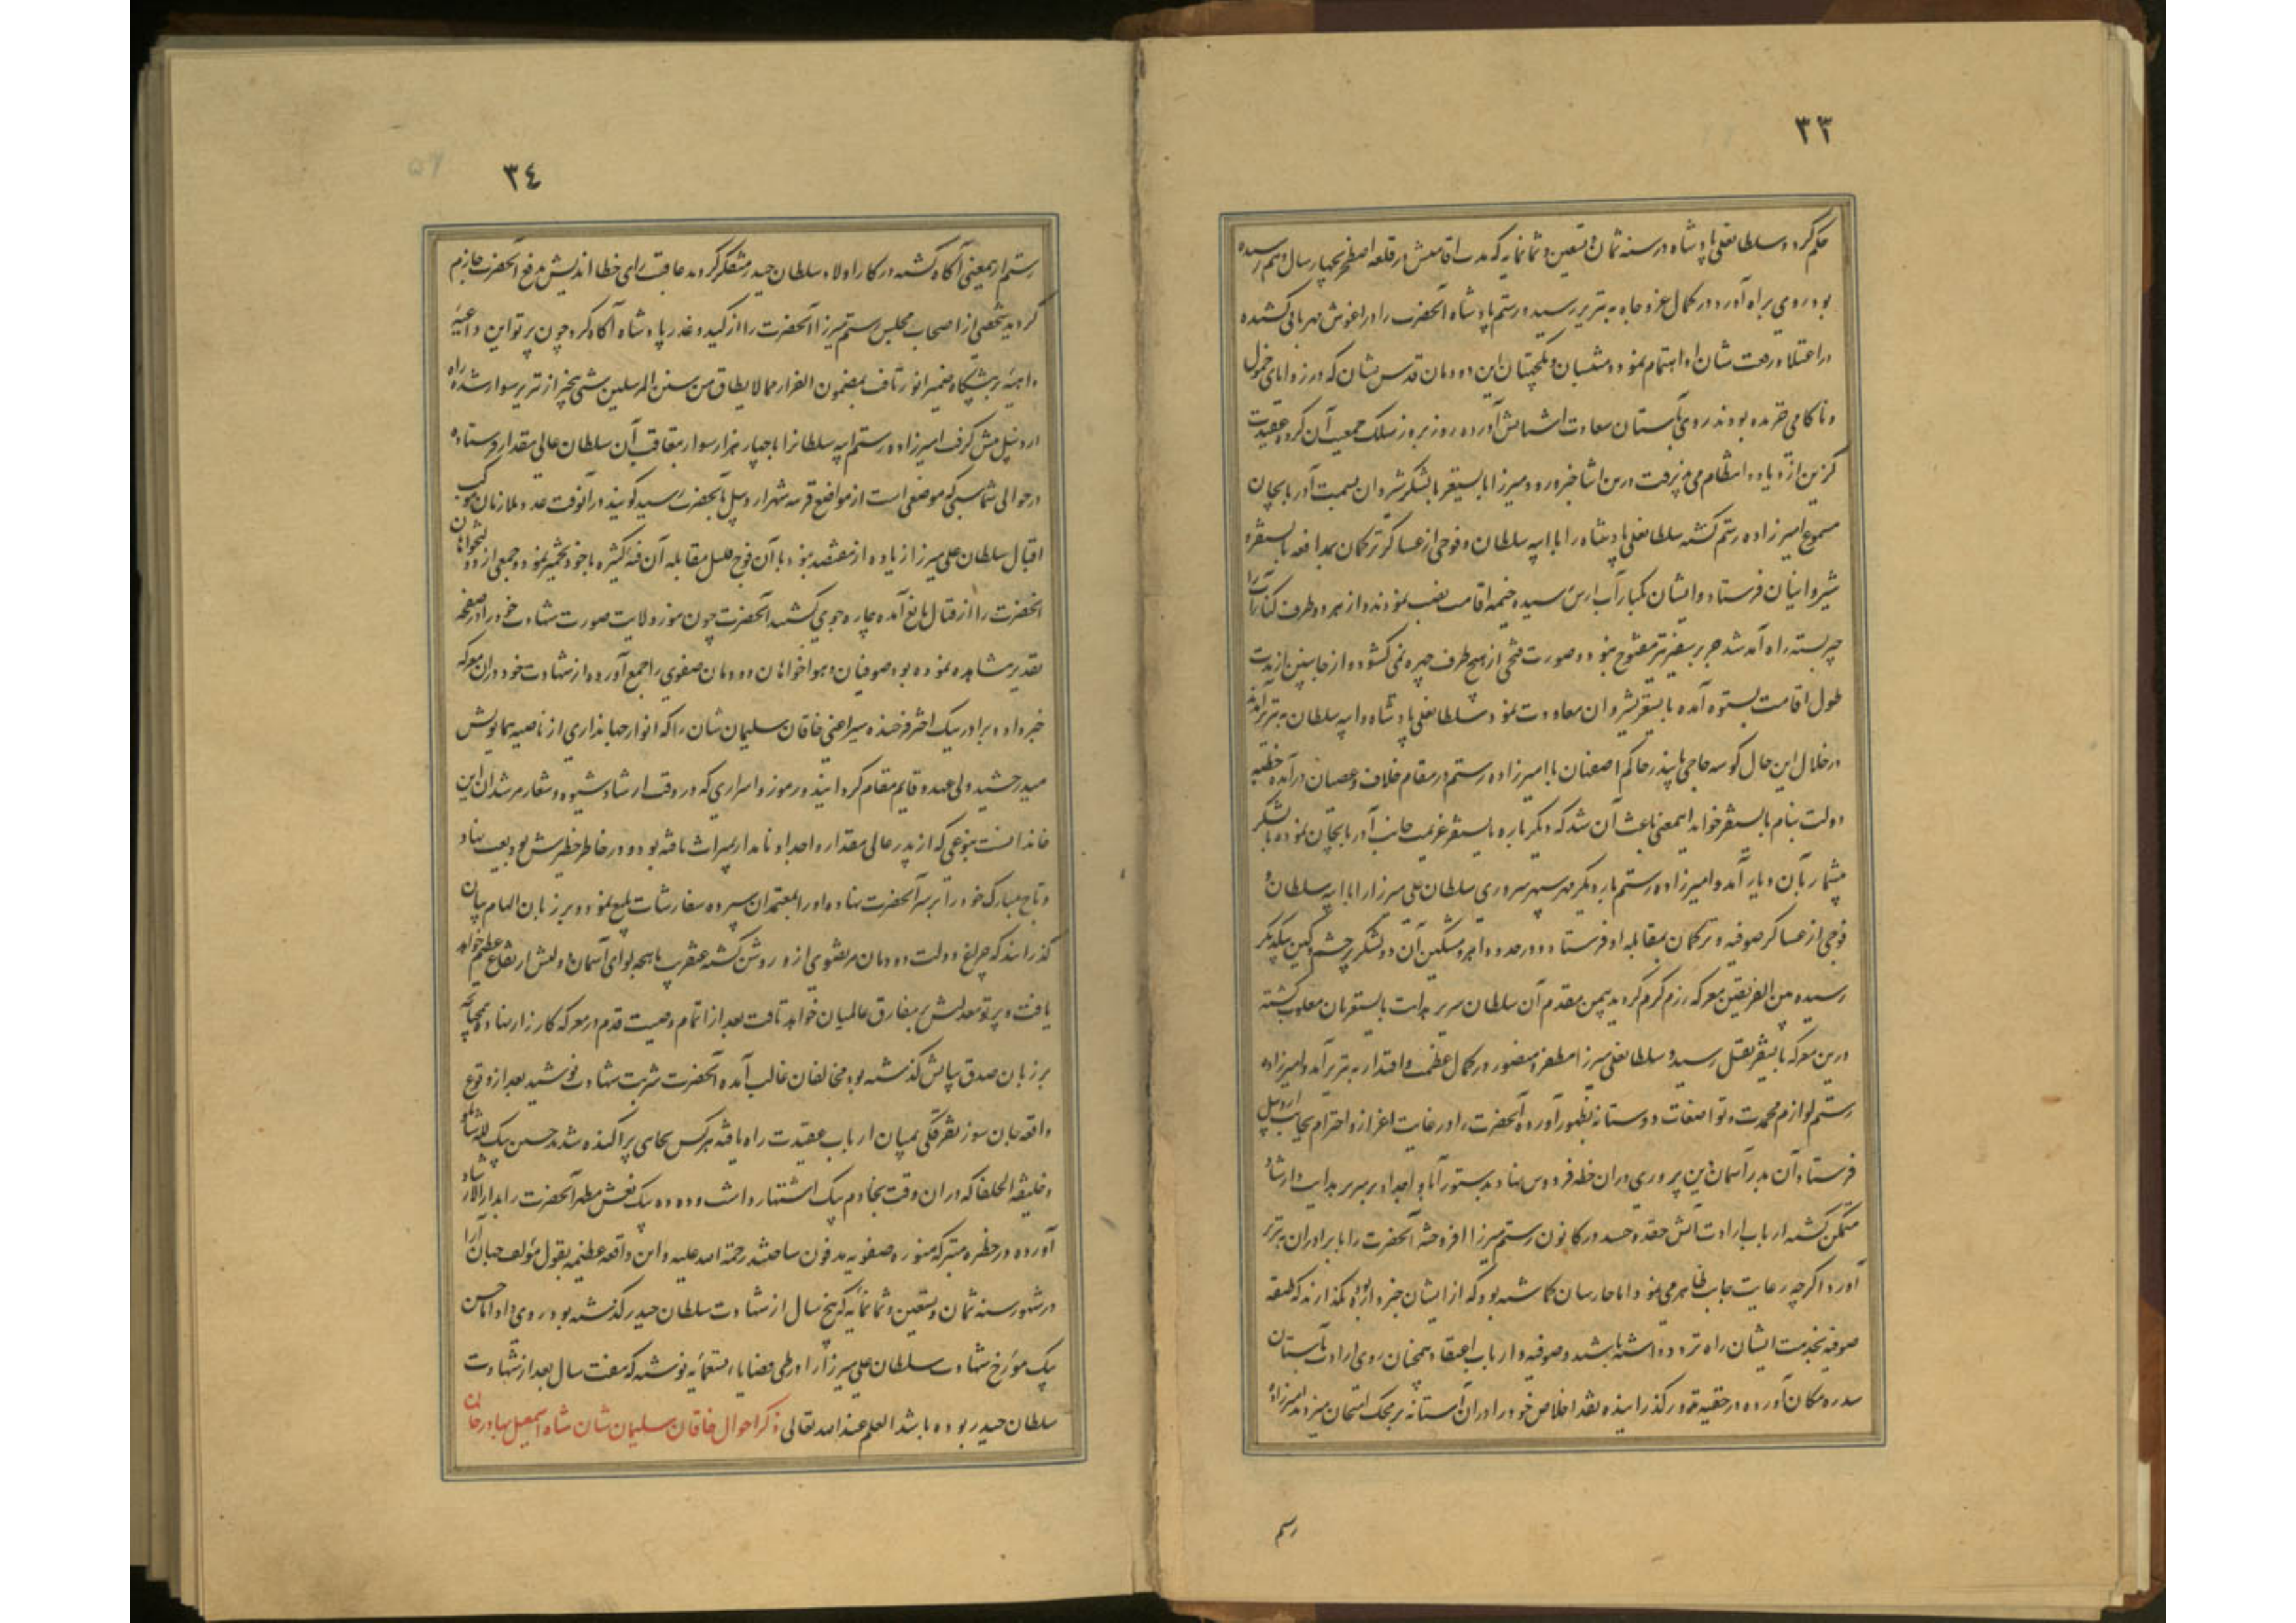 ٣٣
حکم کرد و سلطانعلی پادشاه در سنه ثمان و تسعین و ثمانمایه که مدت اقامتش در قلعه اصطخر بچهار سال و نیم رسیده
بود روی براه آورد در کمال عز و جاه به تبریز رسید و رستم پادشاه آنحضرت را در اغوش مهربانی کشیده
در اعتلا و رفعت شان او اهتمام نمود و منتسبان و یکجهتان این دودمان قدس نشان که در زوایای خمول
و ناکامی خزیده بودند روی بآستان سعادت اشیانش آورده روز بروز سلک جمعیت آن گروه عقیدت
گزین ازدیاد و انتظام می پذیرفت درین اثنا خبر ورود میرزا بایسنقر با لشکر شروان بسمت آذربایجان
مسموع امیرزاده رستم گشته سلطانعلی پادشاه را با ایبه سلطان و فوجی از عساکر ترکمان بمدافعه بایسنقر و
شیروانیان فرستاد و ایشان بکنار آب ارس رسیده خیمه اقامت نصب نمودند و از هر دو طرف کنار آب را
جر بسته راه آمد شد جز بسفیر تیر مفتوح نبود و صورت فتحی از هیچ طرف چهره نمی گشود و از جانبین از مدت
طول اقامت بستوه آمده بایسنقر بشروان معاودت نمود و سلطانعلی پادشاه و ایبه سلطان به تبریز آمدند
در خلال این حال کوسه حاجی بایندر حاکم اصفهان با امیرزاده رستم در مقام خلاف و عصیان درآمده خطبه
دولت بنام بایسنقر خواند اینمعنی باعث آن شد که دیگر باره بایسنقر عزیمت جانب آذربایجان نموده با لشکر
بیشمار بآن دیار آمد و امیرزاده رستم بار دیگر مهر سپهر سروری سلطان علی میرزا را با ایبه سلطان و
فوجی از عساکر صوفیه و ترکمان بمقابله او فرستاد و در حدود اهر و مشکین آن دو لشکر پر خشم و کین بیکدیگر
رسیده بین الفریقین معرکه رزم گرم گردید بیمن مقدم آن سلطان سریر هدایت بایسنقریان مغلوب گشته
درین معرکه بایسنقر بقتل رسید و سلطانعلی میرزا مظفر و منصور در کمال عظمت و اقتدار به تبریز آمد و امیرزاده
رستم لوازم محمدت و تواضعات دوستانه بظهور آورده آنحضرت را در غایت اعزاز و احترام بجانب اردبیل
فرستاد آن بدر آسمان دین پروری در ان خطه فردوس بنیاد بدستور آبا و اجداد بر سریر هدایت و ارشاد
متمکن گشته ارباب ارادت آتش حقد و حسد در کانون رستم میرزا افروخته آنحضرت را با برادران به تبریز
آورد اگرچه رعایت جانب ظاهر می نمود اما حارسان گماشته بود که از ایشان خبردار بوده نگذارند که طبقه
صوفیه بخدمت ایشان راه تردد داشته باشند و صوفیه و ارباب اعتقاد همچنان روی ارادت بآستان
سدره مکان آورده در خفیه نذور گذرانیده نقد اخلاص خود را در ان آستانه بر محک امتحان میزدند امیرزاده
رستم
٣٤
رستم ازینمعنی آگاه گشته در کار اولاد سلطان حیدر متفکر گردید عاقبت رای خطا اندیش بدفع آنحضرت جازم
گردید شخصی از اصحاب مجلس رستم میرزا آنحضرت را از کید و غدر پادشاه آگاه کرد چون پرتو این داعیه
واهیه بر پیشگاه ضمیر انور تافت بمضمون الفرار مما لا یطاق من سنن المرسلین شبی بیخبر از تبریز سوار شده راه
اردبیل پیش گرفت امیرزاده رستم ایبه سلطانرا با چهار هزار سوار بتعاقب آن سلطان عالی مقدار فرستاده
در حوالی شماسبی که موضعی است از مواضع قریبه شهر اردبیل بآنحضرت رسید گویند در آنوقت عدد ملازمان موکب
اقبال سلطان علی میرزا زیاده از هفتصد نبود با آن فوج قلیل مقابله آن فئه کثیره با خود مخمر نمود و جمعی از دولتخواهان
انحضرت را از قتال مانع آمده چاره جوی گشتند آنحضرت چون بنور ولایت صورت شهادت خود را در صفحه
تقدیر مشاهده نموده بود صوفیان و هواخواهان دودمان صفوی را جمع آورده از شهادت خود در ان معرکه
خبر داد و برادر نیک اختر فرخنده سیر اعنی خاقان سلیمان شان را که انوار جهانداری از ناصیه همایونش
میدرخشید ولی عهد و قایم مقام گردانید و رموز و اسراری که در وقت ارشاد شیوه و شعار مرشدان این
خاندانست بنوعی که از پدر عالی مقدار و اجداد نامدار بمیراث یافته بود و در خاطر خطیرش بودیعت نهاد
و تاج مبارک خود را بر سر آنحضرت نهاده او را بمعتمدان سپرده سفارشات بلیغ نمود و بر زبان الهام بیان
گذرانید که چراغ دولت دودمان مرتضوی از و روشن گشته عنقریب ماهچه لوای آسمان فرسایش ارتفاع عظیم خواهد
یافت و پرتو معدلتش بر مفارق عالمیان خواهد تافت بعد از اتمام وصیت قدم در معرکه کارزار نهاد و همچنانچه
بر زبان صدق بیانش گذشته بود مخالفان غالب آمده آنحضرت شربت شهادت نوشید بعد از وقوع
واقعه جان سوز تفرقگی بمیان ارباب عقیدت راه یافته هر کس بجای پراکنده شدند حسین بیک لله شاملو
و خلیفة الخلفا که در ان وقت بخادم بیک اشتهار داشت و ده ده بیک نعش مطهر آنحضرت را بدار الارشاد
آورده در حظیره متبرکه منوره صفویه مدفون ساختند رحمة الله علیه و این واقعه عظیمه بقول مؤلف جهان آرا
در شهور سنه ثمان و تسعین و ثمانمأیه که پنج سال از شهادت سلطان حیدر گذشته بود روی داد اما حسن
بیک مؤرخ شهادت سلطان علی میرزا را در طی قضایاء تسعمأیه نوشته که هفت سال بعد از شهادت
سلطان حیدر بوده باشد العلم عند الله تعالی ذکر احوال خاقان سلیمان شان شاه اسمعیل بهادرخان